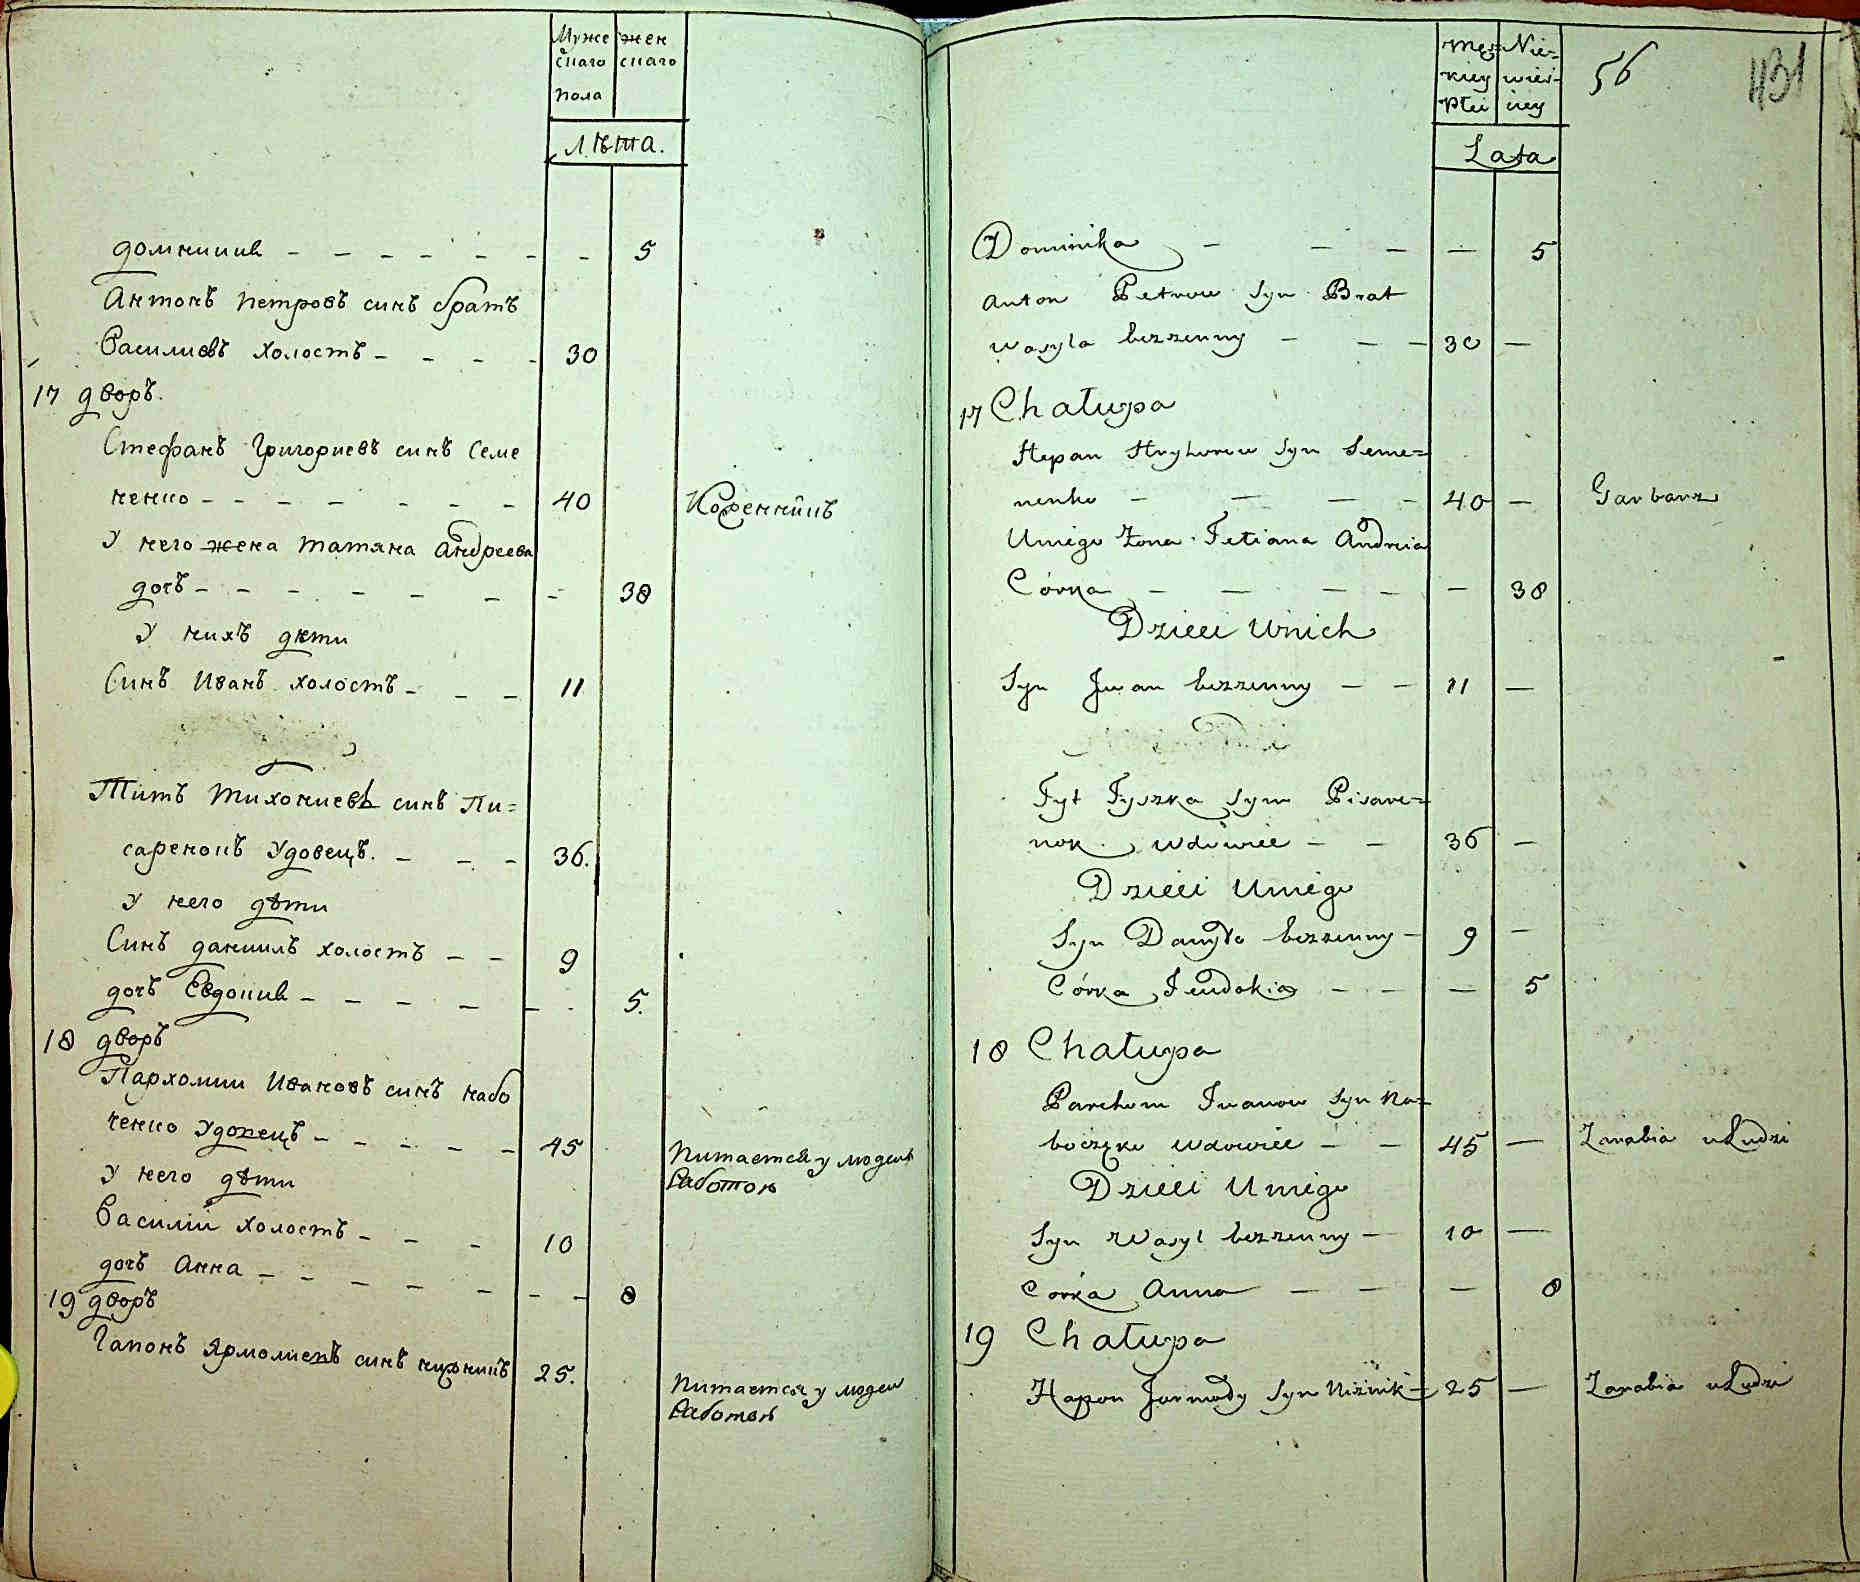 Муже жен
скаго скаго
пола
лѣта.
домникiя - - - - - - - 5
Антонъ Петровъ синъ братъ
Василиевъ холостъ - - - - 30
17 дворъ.
Стефанъ Григориевъ синъ Семе
ненко - - - - - - 40 Коженникъ
У него жена татяна андреева
дочъ - - - - - - - 38
У нихъ дѣти
Синъ Иванъ холостъ - - - 11
Титъ тихониевъ синъ Пи=
саренокъ удовецъ. - - - 36.
У него дѣти
Синъ даниилъ холостъ - - 9
дочъ Евдокия - - - - - - 5.
18 дворъ
Пархомии Ивановъ синъ набо
ченко удовецъ - - - - - 45 питается у людей
работою
У него дѣти
Василiй холостъ - - - 10
дочъ Анна - - - - - - - 8
19 дворъ
Гапонъ Ярмолиевъ синъ нижникъ 25. питается у людей
работою
męz= Nie=
kiey wieś=
płci ciey
Lata
56
431
Dominika - - - - 5
Anton Petrow Syn Brat
Wasyla bezzenny - - - 30 -
17 Chałupa
Stepan Hryhorow Syn Seme=
nenko - - - - 40 - Garbarz
Uniego Żona Tetiana Andreia
Córka - - - - - 38
Dzieci Unich
Syn Jwan bezzenny - - 11 -
Tyt Tyszka Syn Pisare=
nok wdowiec - - 36 -
Dzieci Uniego
Syn Danyło bezzenny - 9 -
Córka Jeudokia - - - 5
18 Chałupa
Parchom Iwanow Syn Na=
boczęko wdowiec - - 45 - Zarabia u Ludzi
Dzieci Uniego
Syn Wasyl bezzenny - 10 -
Corka Anna - - - 8
19 Chałupa
Hapon Jarmoły Syn Niżnik - 25 - Zarabia u Ludzi